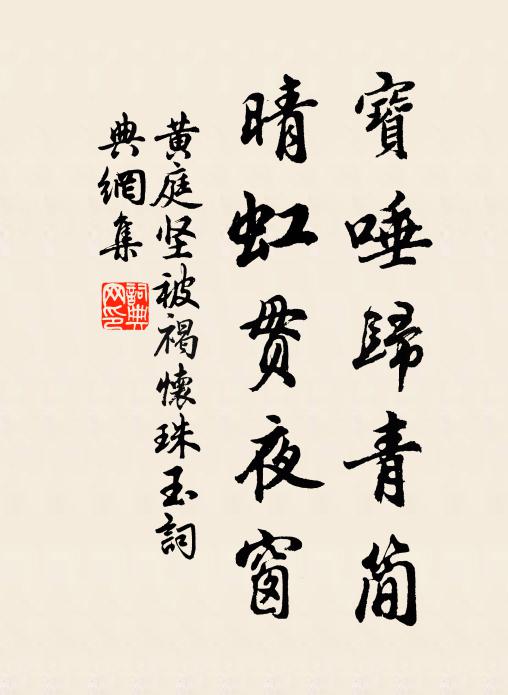 寶唾歸青简
晴虹贯夜窗
黄庭坚被褐懷珠玉詞
典網集
詞典
网印